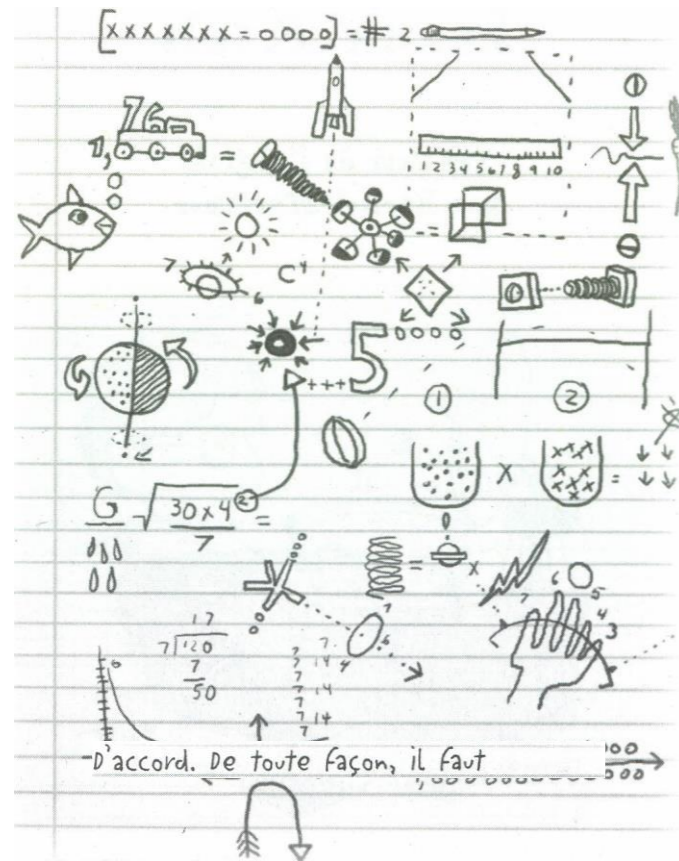 [xxxxxxx=0000]=# 2
1,76 =
1 2 3 4 5 6 7 8 9 10
=
7 6
C⁴
+++5 0000
1 2
X =
G √30x4/7 ② =
= x
17
7√120
7
50
7
7 14
7
7 14
7
7 14
7
7 6 4
7 6 5 4 3
0
D'accord. De toute façon, il faut